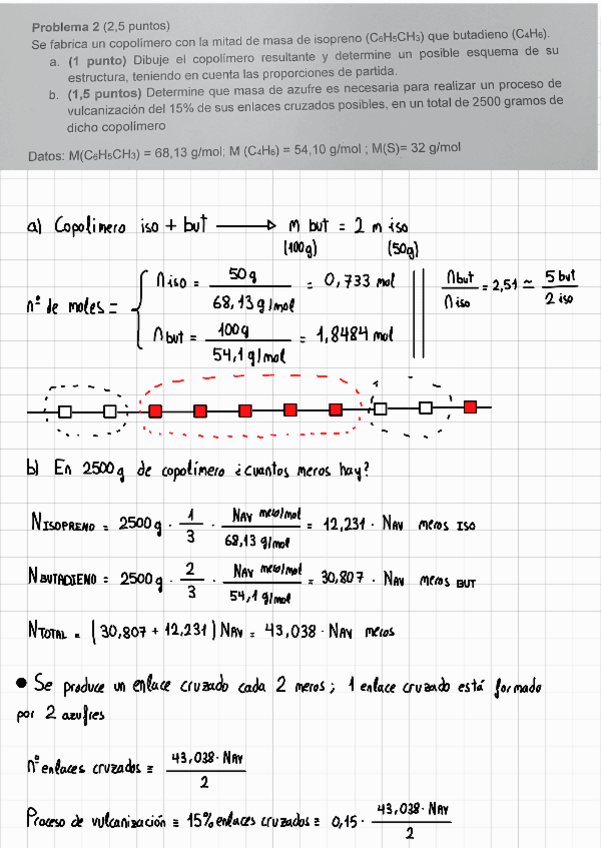 Problema 2 (2,5 puntos)
Se fabrica un copolímero con la mitad de masa de isopreno (C₆H₅CH₃) que butadieno (C₄H₆).
a. (1 punto) Dibuje el copolímero resultante y determine un posible esquema de su
estructura, teniendo en cuenta las proporciones de partida.
b. (1,5 puntos) Determine que masa de azufre es necesaria para realizar un proceso de
vulcanización del 15% de sus enlaces cruzados posibles, en un total de 2500 gramos de
dicho copolímero
Datos: M(C₆H₅CH₃) = 68,13 g/mol; M (C₄H₆) = 54,10 g/mol ; M(S)= 32 g/mol
a) Copolimero iso + but → m but = 2 m iso
(100g) (50g)
nº de moles =
n iso = 50g / 68,13 g/mol = 0,733 mol
n but = 100g / 54,1 g/mol = 1,8484 mol
n but / n iso = 2,51 ≃ 5 but / 2 iso
b) En 2500g de copolímero ¿cuantos meros hay?
N ISOPRENO = 2500g · 1/3 · NAV mero/mol / 68,13 g/mol = 12,231 · NAV meros ISO
N BUTADIENO = 2500g · 2/3 · NAV mero/mol / 54,1 g/mol = 30,807 · NAV meros BUT
N TOTAL = (30,807 + 12,231) NAV = 43,038 · NAV meros
● Se produce un enlace cruzado cada 2 meros; 1 enlace cruzado está formado
por 2 azufres
nº enlaces cruzados ≡ 43,038 · NAV / 2
Proceso de vulcanización ≡ 15% enlaces cruzados ≡ 0,15 · 43,038 · NAV / 2